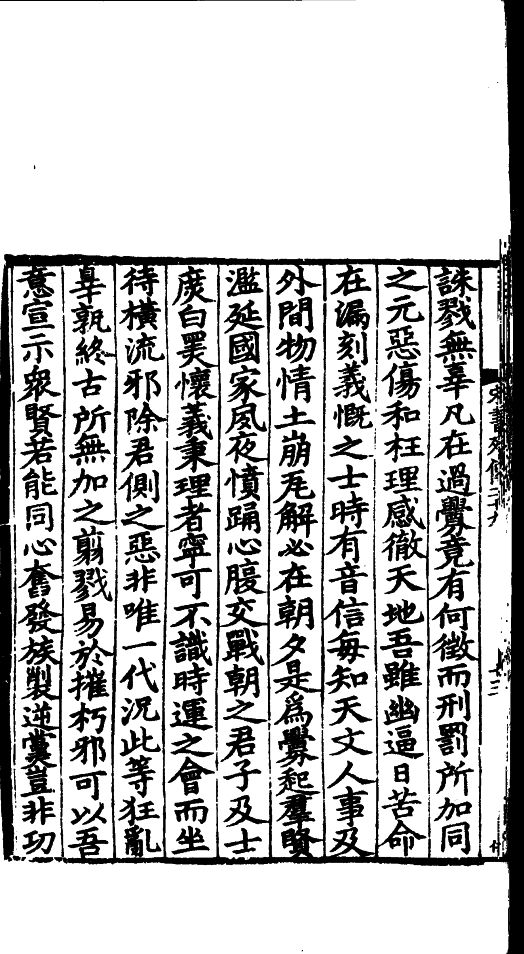 宋書列傳二十九
十三
誅戮無辜凡在過釁竟有何徵而刑罰所加同
之元惡傷和枉理感徹天地吾雖幽逼日苦命
在漏刻義慨之士時有音信每知天文人事及
外間物情土崩瓦解必在朝夕是爲釁起羣賢
濫延國家夙夜憤踊心腹交戰朝之君子及士
庶白黑懷義秉理者寧可不識時運之會而坐
待橫流邪除君側之惡非唯一代況此等狂亂
辠孰終古所無加之翦戮易於摧朽邪可以吾
意宣示衆賢若能同心奮發族製逆黨豈非功